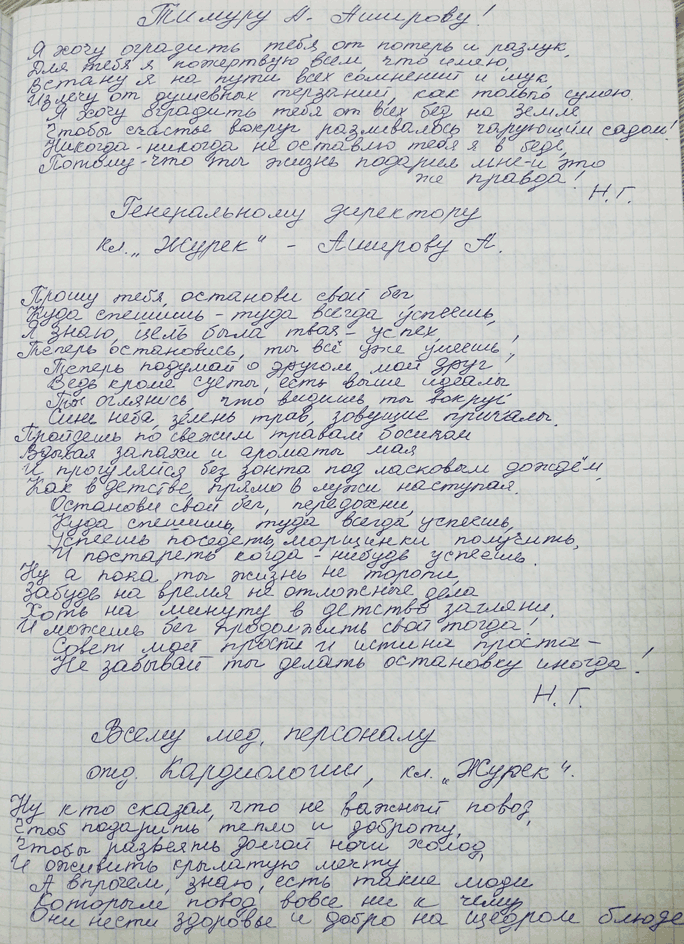 Тимуру А. Аширову!
Я хочу оградить тебя от потерь и разлук,
Для тебя я пожертвую всем, что имею,
Встану я на пути всех сомнений и мук
Излечу от душевных терзаний, как только сумею.
Я хочу оградить тебя от всех бед на земле
Чтобы счастье вокруг разливалось чарующим садом!
Никогда-никогда не оставлю тебя я в беде,
Потому-что ты жизнь подарил мне-и это
же правда!
Н.Г.
Генеральному директору
кл. „Журек" - Аширову А.
Прошу тебя, останови свой бег
Куда спешишь - туда всегда успеешь,
Я знаю, цель была твоя - успех,
Теперь остановись, ты всё уже умеешь,
Теперь подумай о другом, мой друг,
Ведь кроме суеты, есть выше идеалы
Ты оглянись что видишь ты вокруг
Синь неба, зелень трав, зовущие причалы.
Пройдешь по свежим травам босиком
Вдыхая запахи и ароматы мая
И прогуляйся без зонта под ласковым дождём,
Как в детстве, прямо в лужи наступая.
Останови свой бег, передохни,
Куда спешишь, туда всегда успеешь,
Успеешь поседеть, морщинки получить,
И постареть когда-нибудь успеешь.
Ну а пока ты жизнь не торопи,
Забудь на время не отложные дела
Хоть на минуту в детство загляни,
И можешь бег продолжить свой тогда!
Совет мой прост и истина проста-
Не забывай ты делать остановку иногда!
Н.Г.
Всему мед. персоналу
отд. Кардиологии, кл. „Журек".
Ну кто сказал, что не важный повод,
Чтоб подарить тепло и доброту,
Чтобы развеять долгой ночи холод,
И оживить крылатую мечту
А впрочем, знаю, есть такие люди
Которым повод вовсе ни к чему
Они нести здоровье и добро на щедром блюде